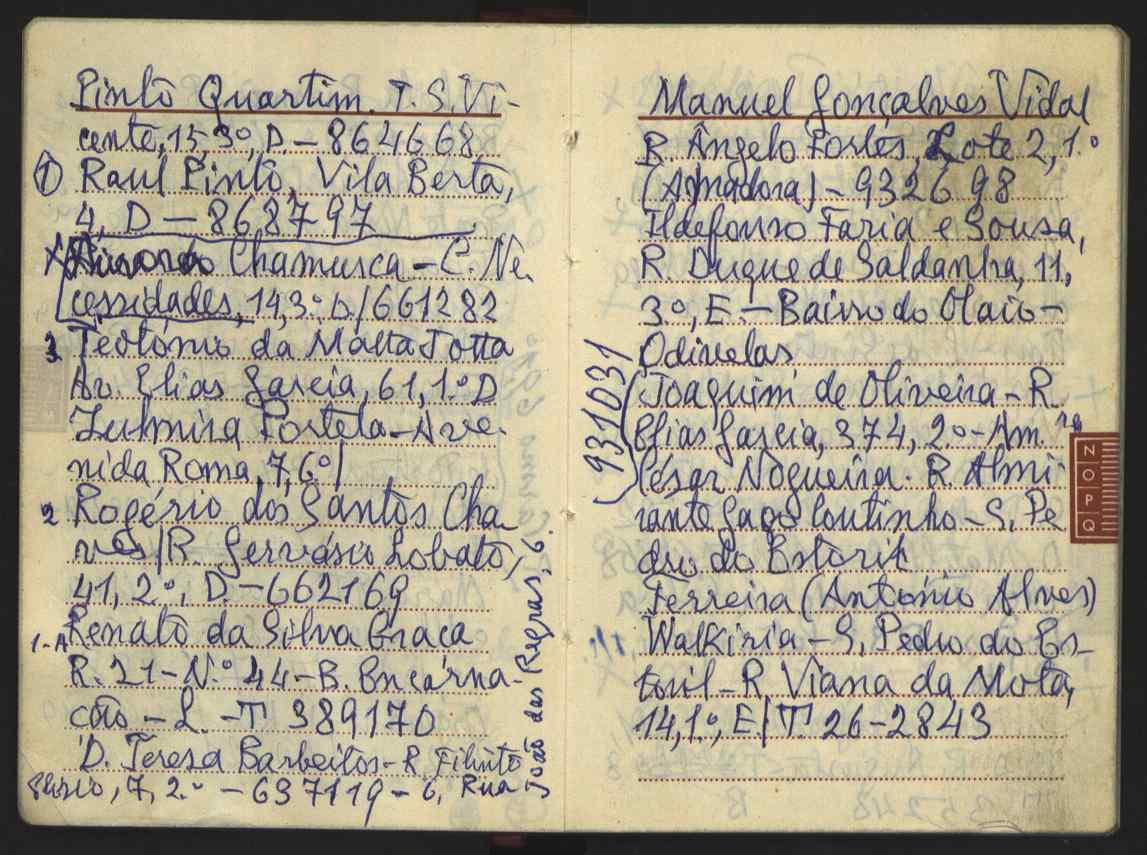 Pinto Quartim. T. S. Vi-
cente, 15, 3º, D. - 864668
① Raul Pinto, Vila Berta,
4, D - 868797
X Chamusca - C. Ne-
cessidades, 14, 3º D / 661282
3 Teotónio da Matta Totta
Av. Elias Garcia, 61, 1º D
Ludmira Portela - Ave-
nida Roma, 7, 6º /
2 Rogério dos Santos Cha-
ves / R. Gervásio Lobato,
41, 2º, D - 662169
1-A Renato da Silva Graça
R. 21 - Nº 44 - B. Encarna-
ção - L. - T 389170
D. Teresa Barbeitos - R. Filinto
Elísio, 7, 2º - 637119 - 6, Rua
João das Regras, 6.
Manuel Gonçalves Vidal
R. Ângelo Fortes, Lote 2, 1º
(Amadora) - 932698
Ildefonso Faria e Sousa,
R. Duque de Saldanha, 11,
3º, E. - Bairro do Olaio -
Odivelas
Joaquim de Oliveira - R.
Elias Garcia, 374, 2º - Am.
931031
César Nogueira. R. Almi-
rante Gago Coutinho - S. Pe-
dro do Estoril
Ferreira (António Alves)
Walkiria - S. Pedro do Es-
toril - R. Viana da Mota,
14, 1º, E / T. 26-2843
N
O
P
Q